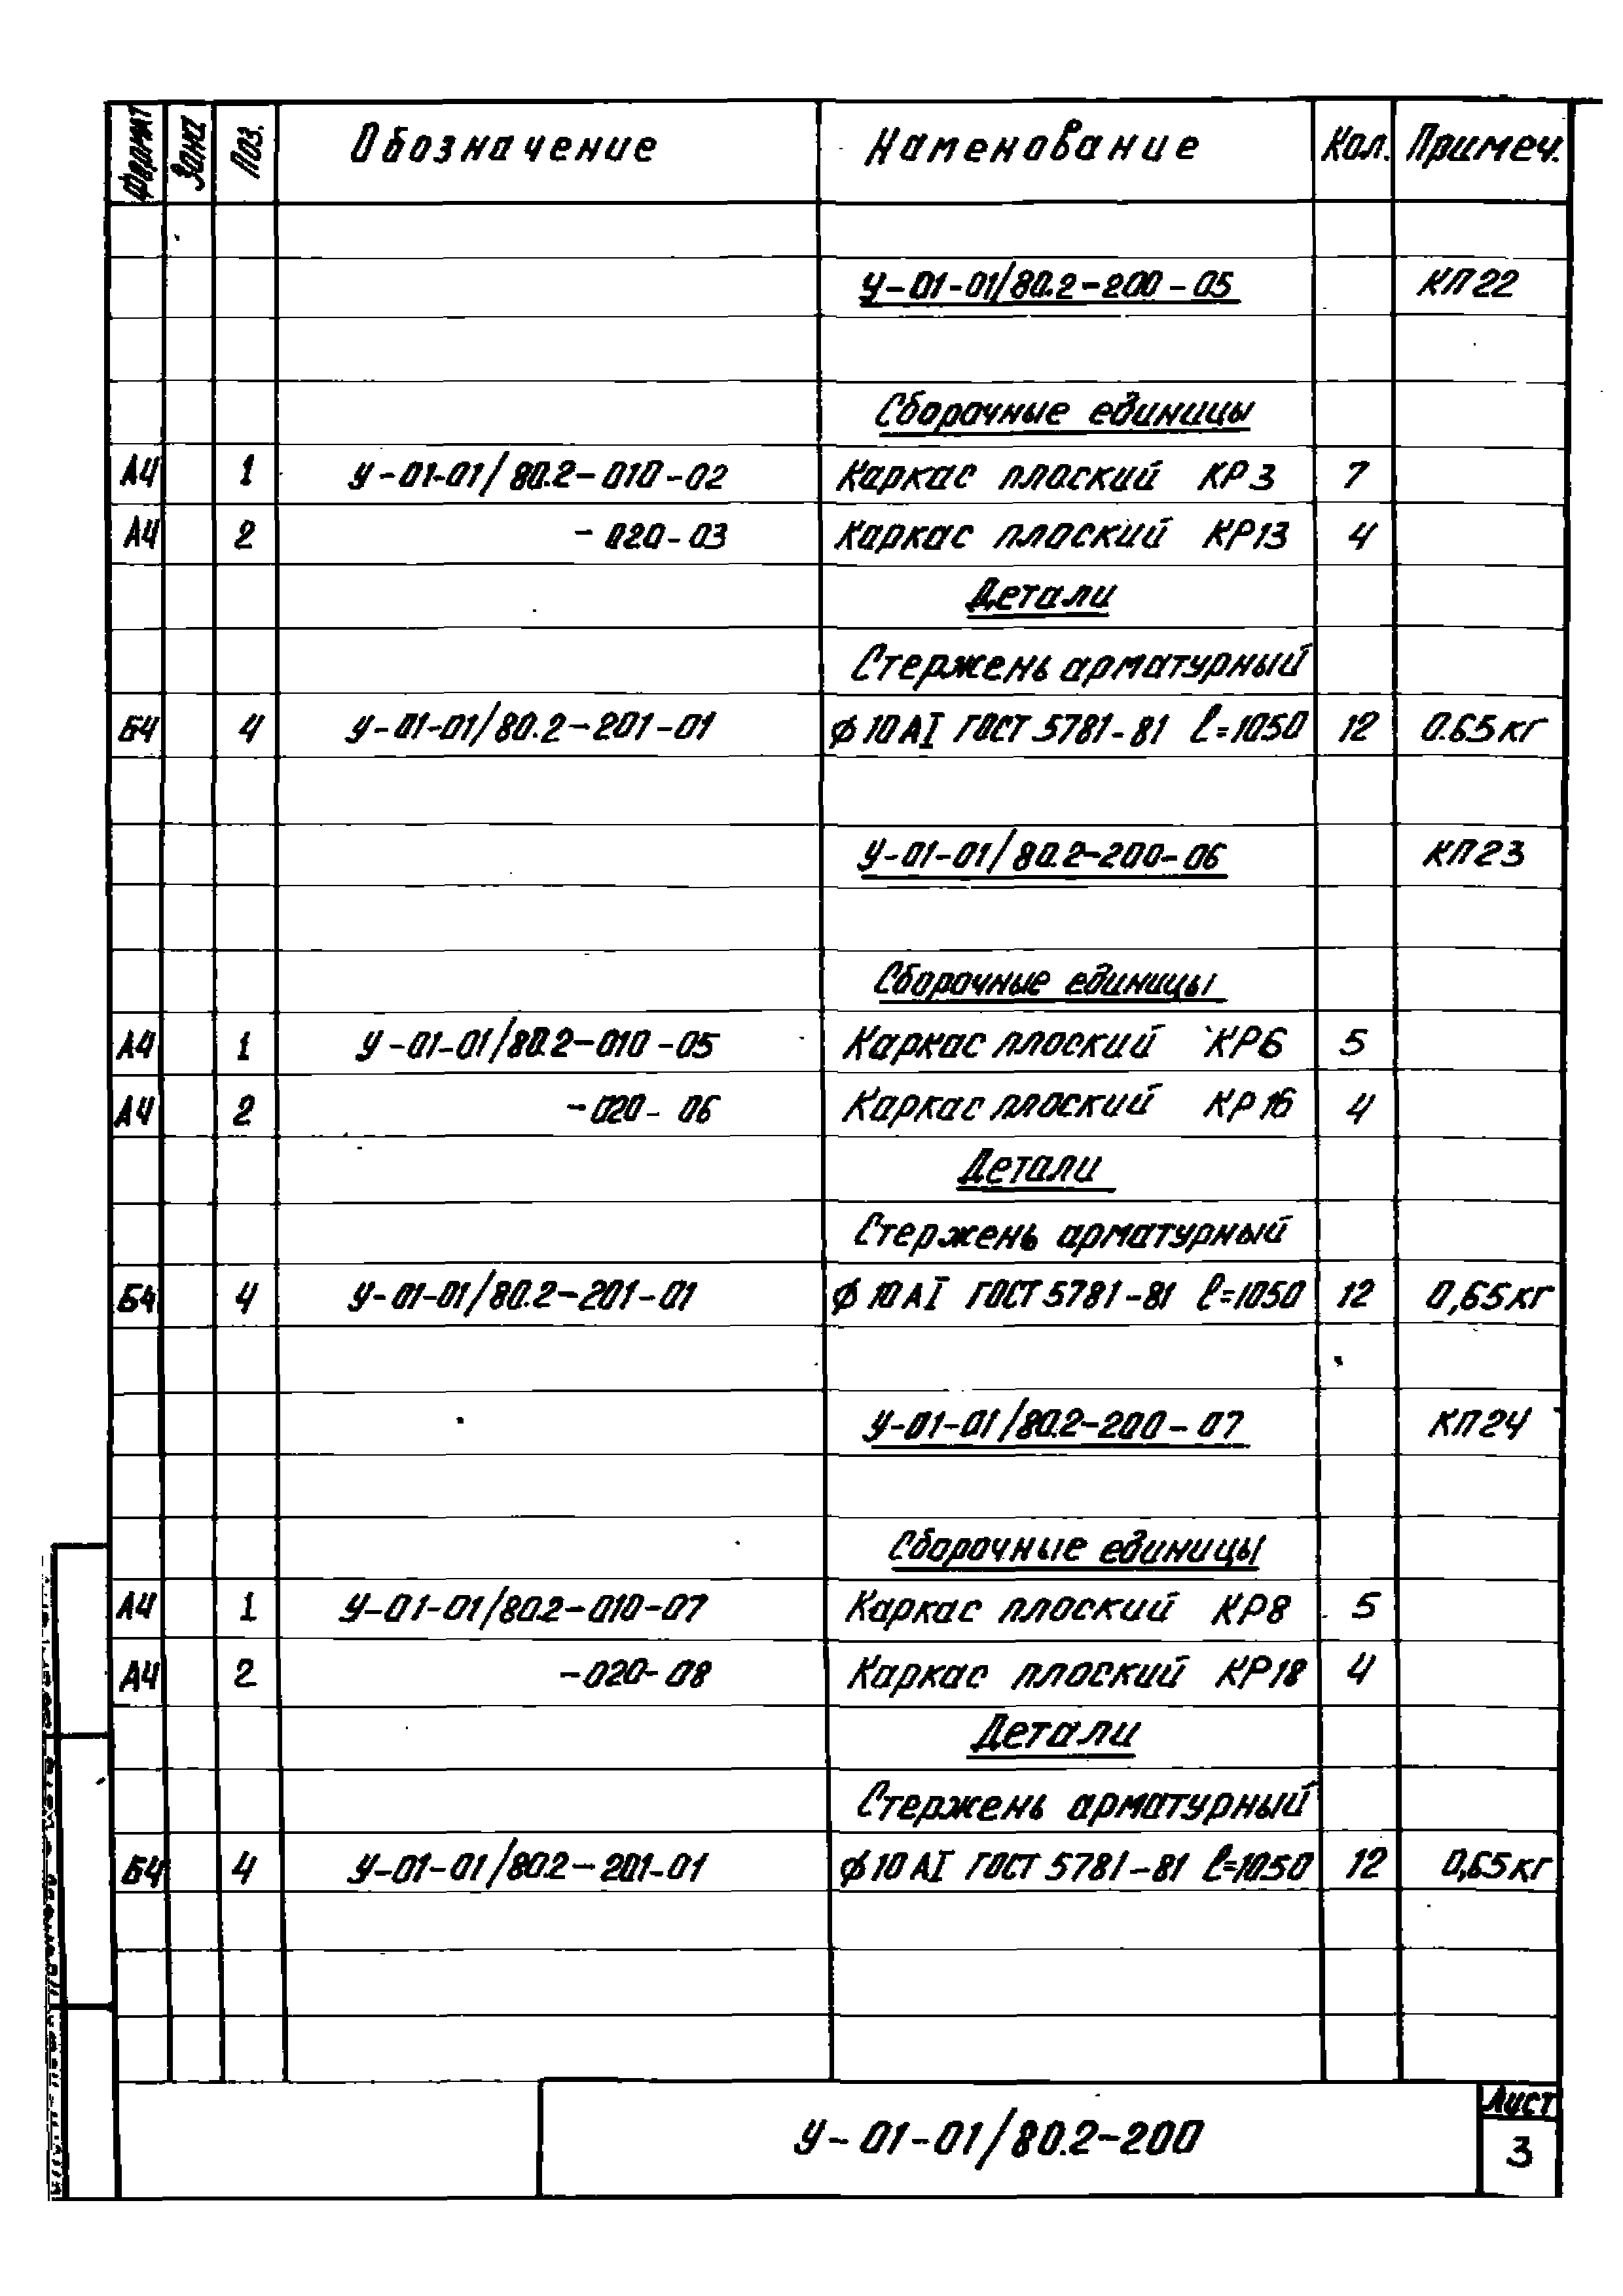 Формат Зона Поз. Обозначение Наименование Кол. Примеч.
У-01-01/80.2-200-05 КП22
Сборочные единицы
А4 1 У-01-01/80.2-010-02 Каркас плоский КР3 7
А4 2 -020-03 Каркас плоский КР13 4
Детали
Стержень арматурный
Б4 4 У-01-01/80.2-201-01 ϕ10АI ГОСТ 5781-81 ℓ=1050 12 0.65кг
У-01-01/80.2-200-06 КП23
Сборочные единицы
А4 1 У-01-01/80.2-010-05 Каркас плоский КР6 5
А4 2 -020-06 Каркас плоский КР16 4
Детали
Стержень арматурный
Б4 4 У-01-01/80.2-201-01 ϕ10АI ГОСТ 5781-81 ℓ=1050 12 0,65кг
У-01-01/80.2-200-07 КП24
Сборочные единицы
А4 1 У-01-01/80.2-010-07 Каркас плоский КР8 5
А4 2 -020-08 Каркас плоский КР18 4
Детали
Стержень арматурный
Б4 4 У-01-01/80.2-201-01 ϕ10АI ГОСТ 5781-81 ℓ=1050 12 0,65кг
У-01-01/80.2-200
Лист
3